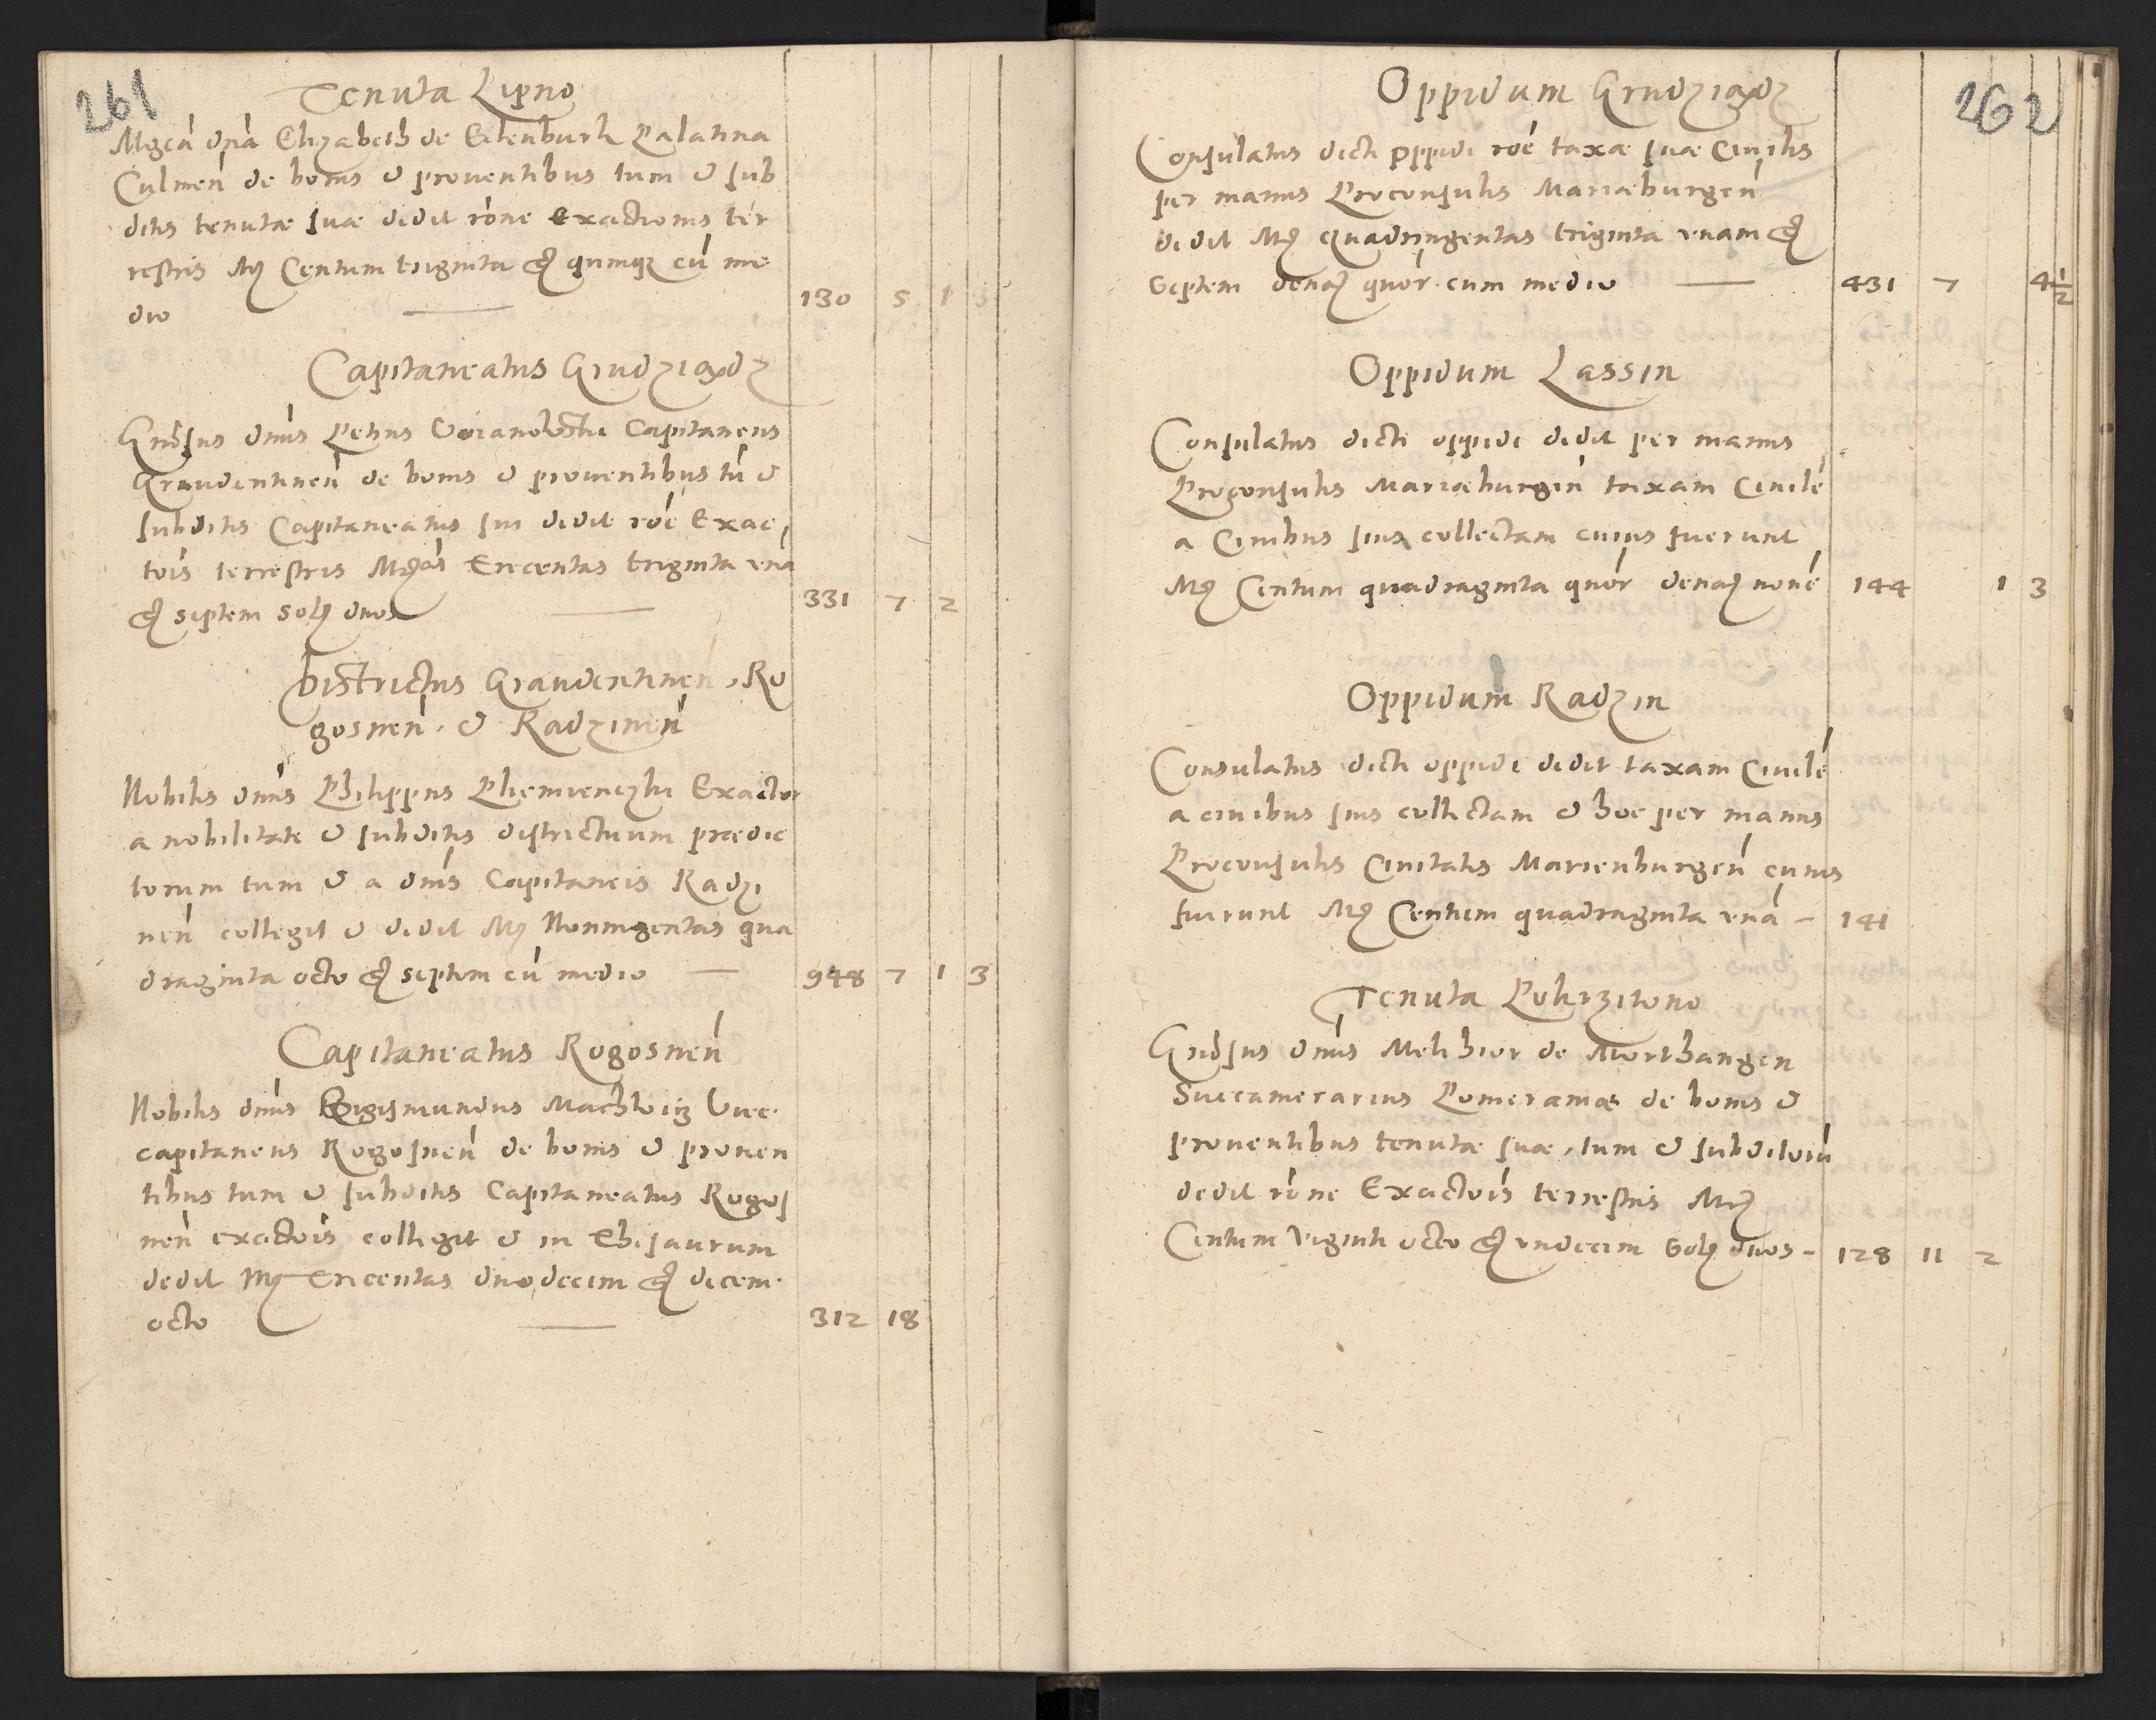 261
Tenuta Lipno
Mgca dna Elizabeth de Eilenburk Palatina
Culmen de bonis & proventibus tum & sub
ditis tenutæ suæ dedit rone Exactionis ter
restris Mꝝ Centum triginta gꝝ quinqꝫ cu me
dio 130 5 1 3
Capitaneatus Grudziądz
Gnosus dnus Petrus Capitaneus
Graudentinen de bonis & proventibus tu &
subditis Capitaneatus sui dedit roe Exac
tois terrestris Mꝝas Trecentas triginta una
gꝝ septem Solꝝ duos 331 7 2
Districtus Graudentinen, Ro
gosnen. & Radzinen
Nobilis dnus Philippus Plemienczki Exactor
a nobilitate & subditis districtuum prædic
torum tum & a dnis Capitaneis Radzi
nen collegit & dedit Mꝝ Nonningentas qua
draginta octo gꝝ septem cu medio 948 7 1 3
Capitaneatus Rogosnen
Nobilis dnus Sigismundus Machwicz Vice
capitaneus Rogosnen de bonis & proven
tibus tum & subditis Capitaneatus Rogos
nen exactois collegit & in Thesaurum
dedit Mꝝ Trecentas duodecim gꝝ decem
octo 312 18
262
Oppidum Grudziądz
Consulatus dicti oppidi roe taxæ suæ Civilis
per manus Proconsulis Mariæburgen
dedit Mꝝ Quadringentas triginta unam gꝝ
Septem denaꝝ quor cum medio 431 7 4 1/2
Oppidum Lassin
Consulatus dicti oppidi dedit per manus
Proconsulis Mariæburgen taxam Civile
a Civibus suis collectam cuius fuerunt
Mꝝ Centum quadraginta quor denaꝝ nove 144 1 3
Oppidum Radzin
Consulatus dicti oppidi dedit taxam Civile
a civibus suis collectam & hoc per manus
Proconsulis Civitatis Marienburgen cuius
fuerunt Mꝝ Centum quadraginta una - 141
Tenuta Pokrziwno
Gnosus dnus Melchior de Morthangen
Succamerarius Pomeraniæ de bonis &
proventibus tenutæ suæ, tum & subditoru
dedit rone Exactois terrestris Mꝝ
Centum viginti octo gꝝ undecim Solꝝ duos - 128 11 2